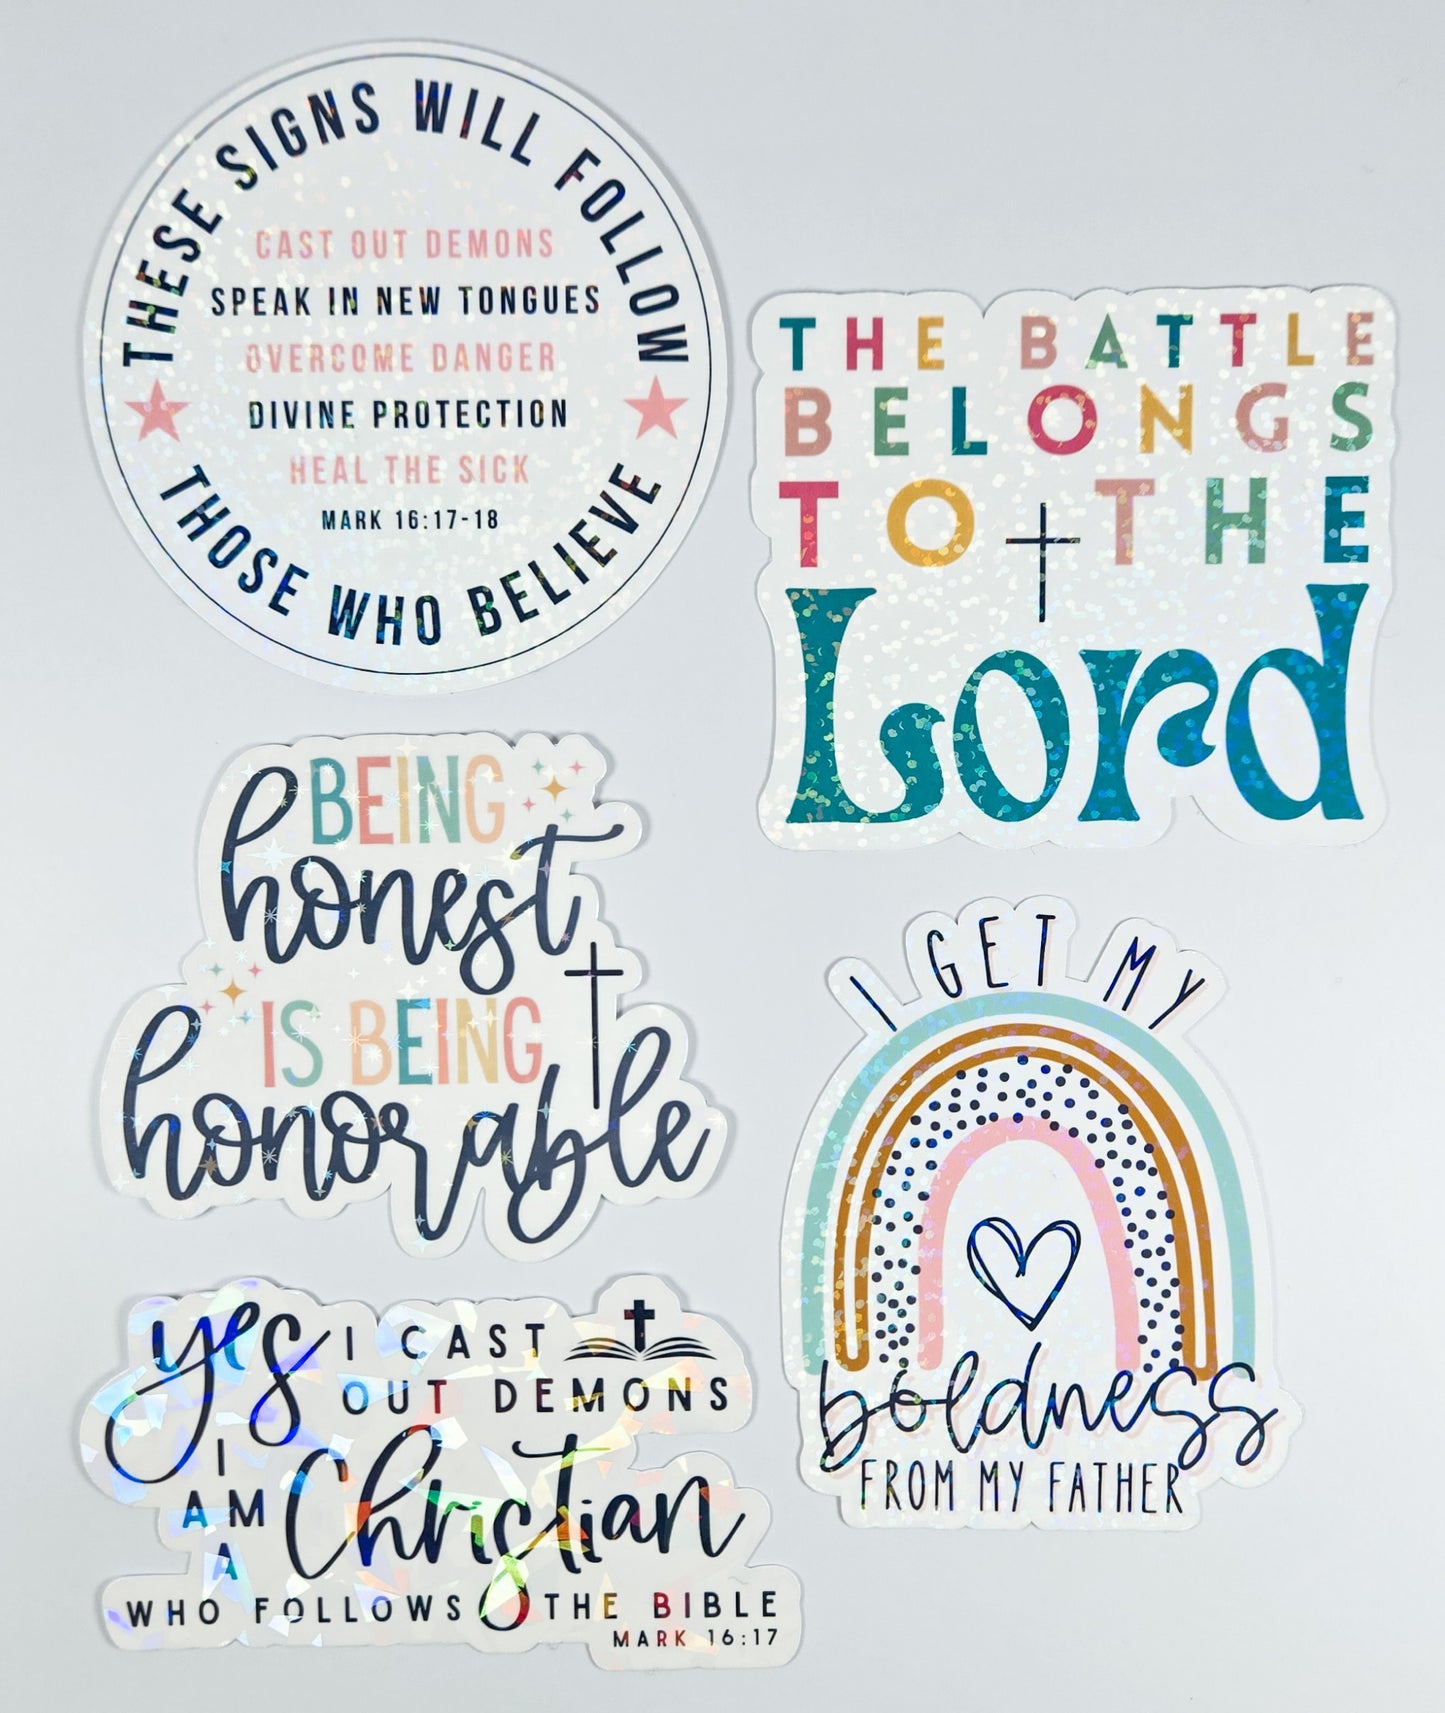 THESE SIGNS WILL FOLLOW
CAST OUT DEMONS
SPEAK IN NEW TONGUES
OVERCOME DANGER
DIVINE PROTECTION
HEAL THE SICK
MARK 16:17-18
THOSE WHO BELIEVE
THE BATTLE
BELONGS
TO THE
Lord
BEING
honest
IS BEING
honorable
I GET MY
boldness
FROM MY FATHER
yes I CAST
OUT DEMONS
I
AM
A
Christian
WHO FOLLOWS THE BIBLE
MARK 16:17